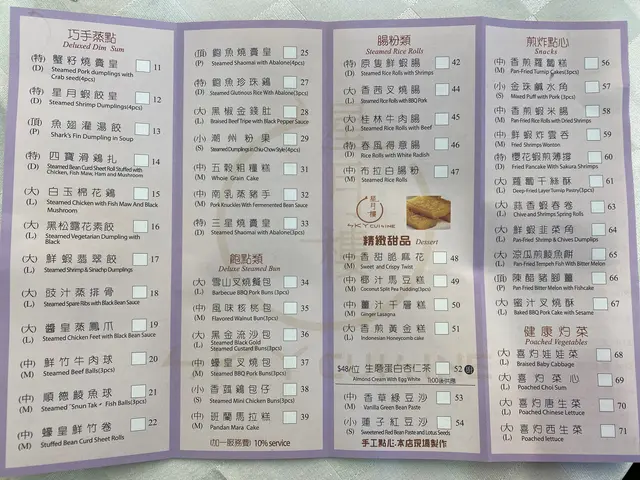 巧手蒸點
Deluxed Dim Sum
(特) 蟹籽燒賣皇 11
(D) Steamed Pork dumplings with
Crab seed(4pcs)
(特) 星月蝦餃皇 12
(D) Steamed Shrimp Dumplings(4pcs)
(頂) 魚翅灌湯餃 13
(P) Shark's Fin Dumpling in Soup
(特) 四寶滑鷄扎 14
(D) Steamed Bean Curd Sheet Roll Stuffed with
Chicken, Fish Maw, Ham and Mushroom
(大) 白玉棉花鷄 15
(L) Steamed Chicken with Fish Maw And Black
Mushroom
(大) 黑松露花素餃 16
(L) Steamed Vegetarian Dumpling with
Black
(大) 鮮蝦翡翠餃 17
(L) Steamed Shrimp & Spinach Dumplings
(大) 豉汁蒸排骨 18
(L) Steamed Spare Ribs with Black Bean Sauce
(大) 醬皇蒸鳳爪 19
(L) Steamed Chicken Feet with Black Bean Sauce
(中) 鮮竹牛肉球 20
(M) Steamed Beef Balls(3pcs)
(中) 順德鯪魚球 21
(M) Steamed "Shun Tak" Fish Balls(3pcs)
(中) 蠔皇鮮竹卷 22
(M) Stuffed Bean Curd Sheet Rolls
(頂) 鮑魚燒賣皇 25
(P) Steamed Shaomai with Abalone(4pcs)
(特) 鮑魚珍珠鷄 27
(D) Steamed Glutinous Rice With Abalone(3pcs)
(大) 黑椒金錢肚 28
(L) Braised Beef Tripe with Black Pepper Sauce
(小) 潮州粉果 29
(S) Steamed Dumplings in Chiu Chow Style(4pcs)
(中) 五穀粗糧糕 31
(M) Whole Grain Cake
(中) 南乳蒸豬手 32
(M) Pork Knuckles With Fermented Bean Sauce
(特) 三星燒賣皇 33
(D) Steamed Shaomai with Abalone(3pcs)
飽點類
Deluxe Steamed Bun
(大) 雪山叉燒餐包 34
(L) Barbecue BBQ Pork Buns (3pcs)
(中) 風味核桃包 35
(M) Flavored Walnut Bun(3pcs)
(大) 黑金流沙包 36
(L) Steamed Black Gold
Steamed Custard Buns(3pcs)
(中) 蠔皇叉燒包 37
(M) Steamed BBQ Pork Buns(3pcs)
(小) 香菇鷄包仔 38
(S) Steamed Mini Chicken Buns(3pcs)
(中) 斑蘭馬拉糕 39
(M) Pandan Mara Cake
(加一服務費) 10% service
腸粉類
Steamed Rice Rolls
(特) 原隻鮮蝦腸 42
(D) Steamed Rice Rolls with Shrimps
(大) 香茜叉燒腸 44
(L) Steamed Rice Rolls with BBQ Pork
(大) 桂林牛肉腸 45
(L) Steamed Rice Rolls with Beef
(特) 春風得意腸 46
(D) Rice Rolls with White Radish
(中) 布拉白腸粉 47
(M) Steamed Rice Rolls
星月樓
SKY CUISINE
精緻甜品 Dessert
(中) 香甜脆麻花 48
(M) Sweet and Crispy Twist
(中) 椰汁馬豆糕 49
(M) Coconut Split Pea Pudding(3pcs)
(中) 薑汁千層糕 50
(M) Ginger Lasagna
(大) 香煎黃金糕 51
(L) Indonesian Honeycomb cake
$48/位 生磨蛋白杏仁茶 52
Almond Cream With Egg White 11:00後供應
(中) 香草綠豆沙 53
(M) Vanilla Green Bean Paste
(小) 蓮子紅豆沙 54
(S) Sweetened Red Bean Paste and Lotus Seeds
手工點心.本店現場製作
煎炸點心
Snacks
(中) 香煎蘿蔔糕 56
(M) Pan-Fried Turnip Cakes(3pcs)
(小) 金珠鹹水角 57
(S) Mixed Puff with Pork (3pcs)
(中) 香煎蝦米腸 58
(M) Pan-Fried Rice Rolls with Dried Shrimps
(中) 鮮蝦炸雲吞 59
(M) Fried Shrimps Wonton
(特) 櫻花蝦煎薄撐 60
(D) Fried Pancake With Sakura Shrimps
(大) 蘿蔔千絲酥 61
(L) Deep-Fried Layer Turnip Pastry(3pcs)
(大) 蒜香蝦春卷 63
(L) Chive and Shrimps Spring Rolls
(大) 鮮蝦韭菜角 64
(L) Pan-Fried Shrimp & Chives Dumplips
(大) 涼瓜煎鯪魚餅 65
(L) Pan-Fried Tempeh Fish With Bitter Melon
(頂) 陳醋豬腳薑 66
(P) Pan-Fried Bitter Melon with Fishcake
(大) 蜜汁叉燒酥 67
(L) Baked BBQ Pork Cake with Sesame
健康灼菜
Poached Vegetables
(大) 喜灼娃娃菜 68
(L) Braised Baby Cabbage
(大) 喜灼菜心 69
(L) Poached Choi Sum
(大) 喜灼唐生菜 70
(L) Poached Chinese Lettuce
(大) 喜灼西生菜 71
(L) Poached lettuce